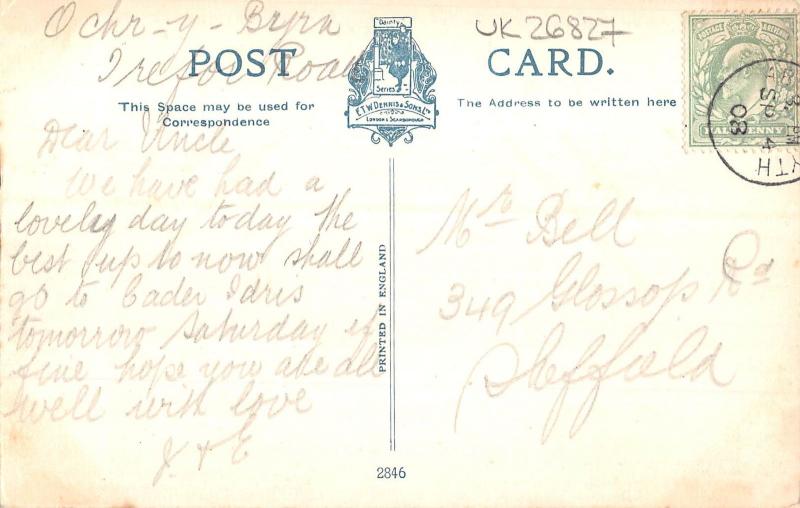 Ochr-y-Bryn
Trefor Road
UK 26827
POST CARD.
Dainty
Series
E.T.W. DENNIS & SONS LTD
LONDON & SCARBOROUGH
This Space may be used for
Correspondence
The Address to be written here
POSTAGE
HALFPENNY
SP 4
08
YTH
Dear Uncle
We have had a
lovely day today the
best up to now shall
go to Cader Idris
tomorrow Saturday if
fine hope you are all
well with love
J. & E
PRINTED IN ENGLAND
Mr Bell
349 Glossop Rd
Sheffield
2846